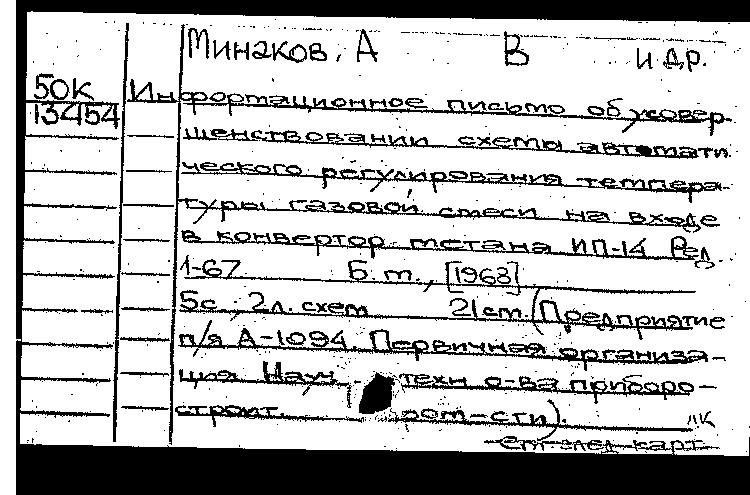 Минаков, А В и др.
50К Информационное письмо об усовер-
13454 шенствовании схемы автомати
ческого регулирования темпера-
туры газовой смеси на входе
в конвертор метана ИП-14 Ред.
1-67 Б.м., [1968]
5с., 2л. схем 21см. (Предприятие
п/я А-1094. Первичная организа-
ция Науч. техн о-ва приборо-
строит. пром-сти).
См. след карт